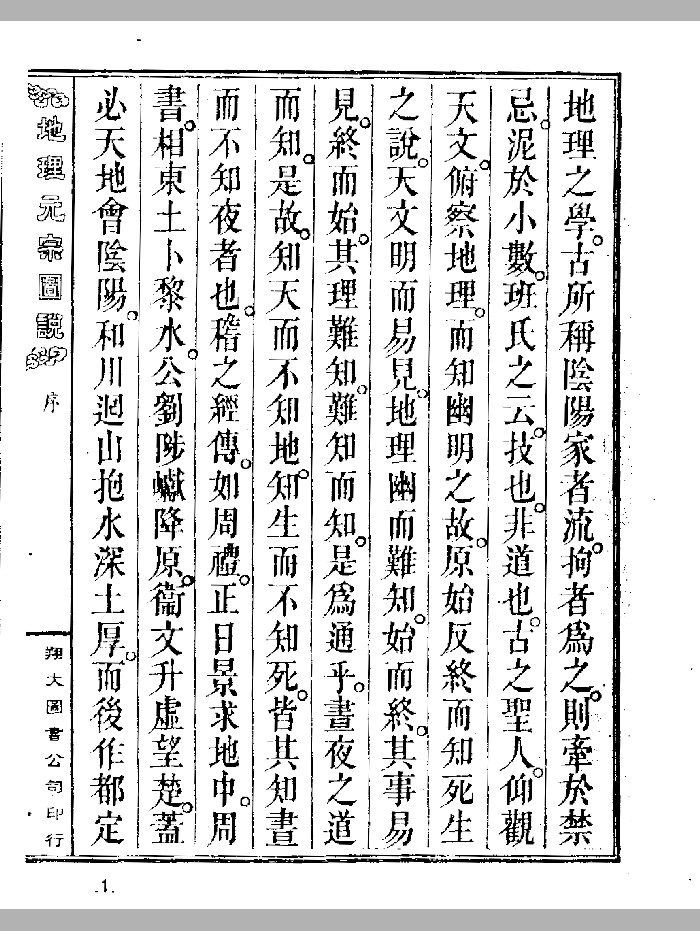 地理之學。古所稱陰陽家者流。拘者爲之。則牽於禁
忌。泥於小數。班氏之云。技也。非道也。古之聖人。仰觀
天文。俯察地理。而知幽明之故。原始反終。而知死生
之說。天文明而易見。地理幽而難知。始而終。其事易
見。終而始。其理難知。難知而知。是爲通乎。晝夜之道
而知。是故。知天而不知地。知生而不知死。皆其知晝
而不知夜者也。稽之經傳。如周禮。正日景求地中。周
書。相東土卜黎水。公劉陟巘降原。衞文升虛望楚。蓋
必天地會陰陽。和川迴山抱水深土厚。而後作都定
地理元宗圖說
序
翔大圖書公司印行
1.